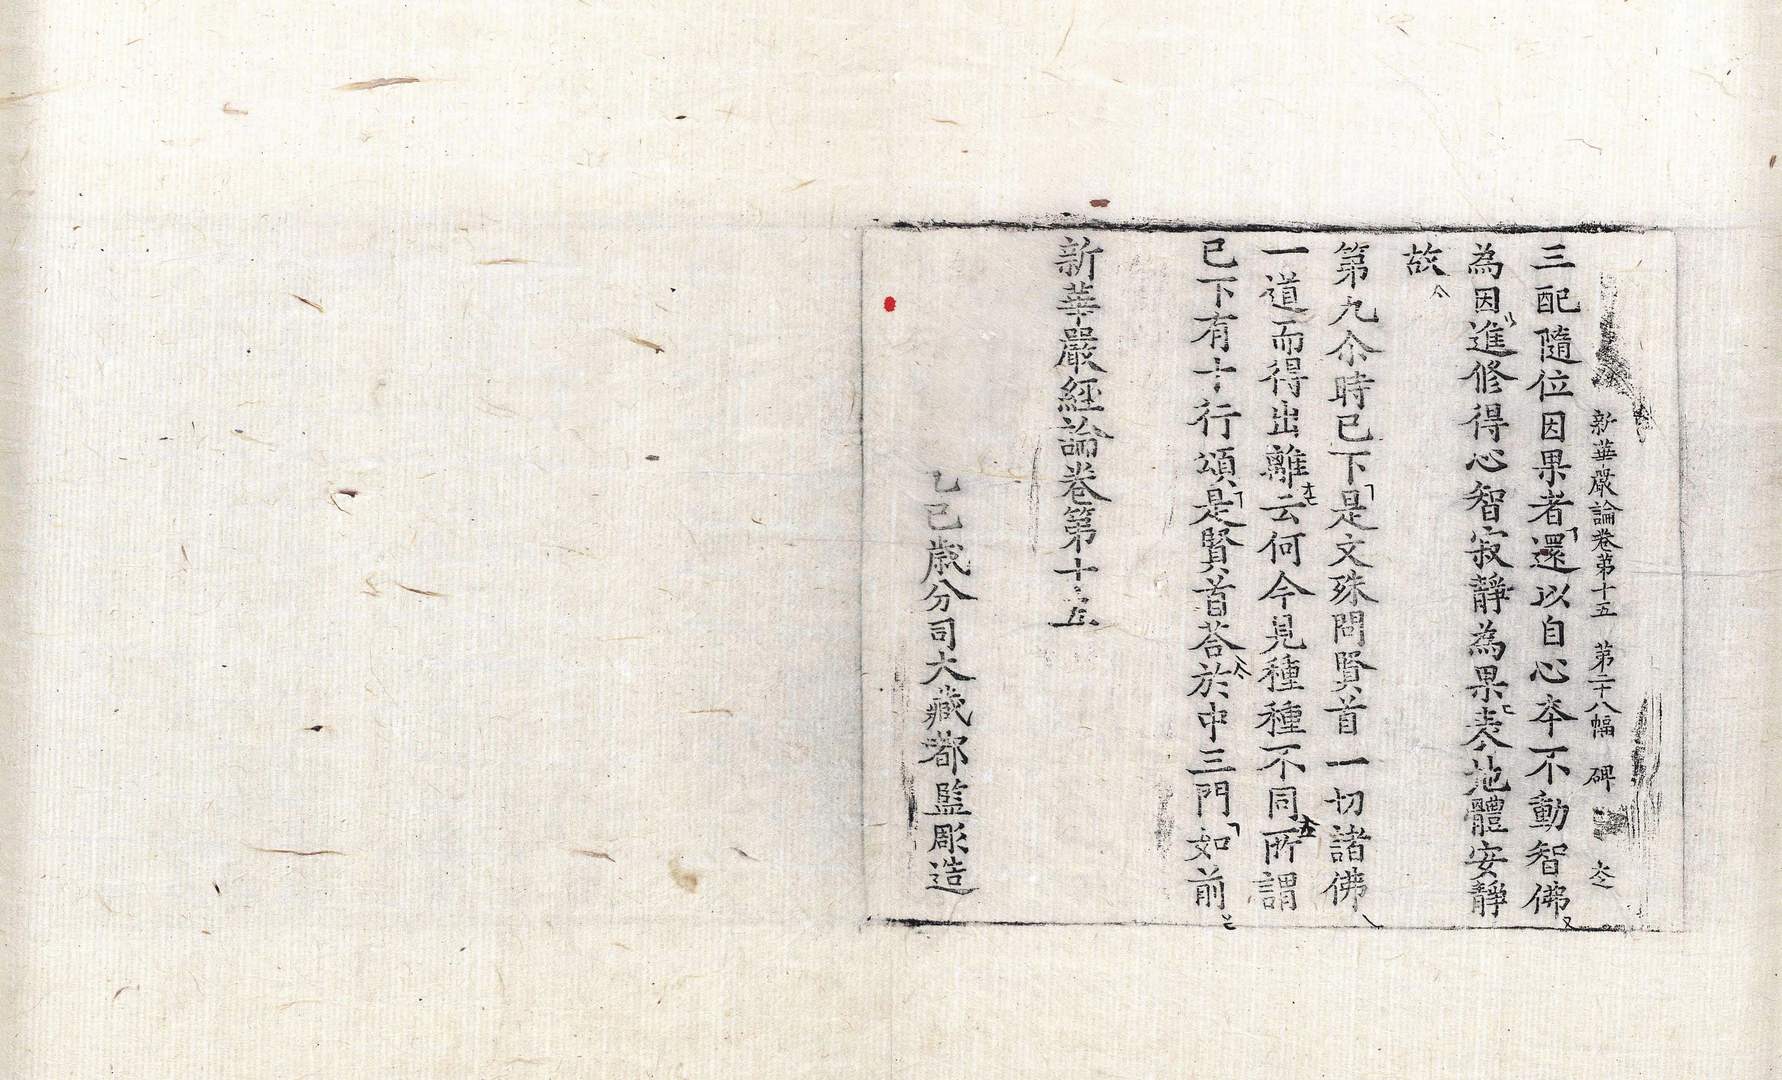 新華嚴論卷第十五　第二十八幅　碑
三配隨位因果者還以自心本不動智佛
為因進修得心智寂靜為果表地體安靜
故
第九尒時已下是文殊問賢首一切諸佛
一道而得出離云何今見種種不同所謂
已下有十行頌是賢首荅於中三門如前
新華嚴經論卷第十五
乙巳歲分司大藏都監彫造